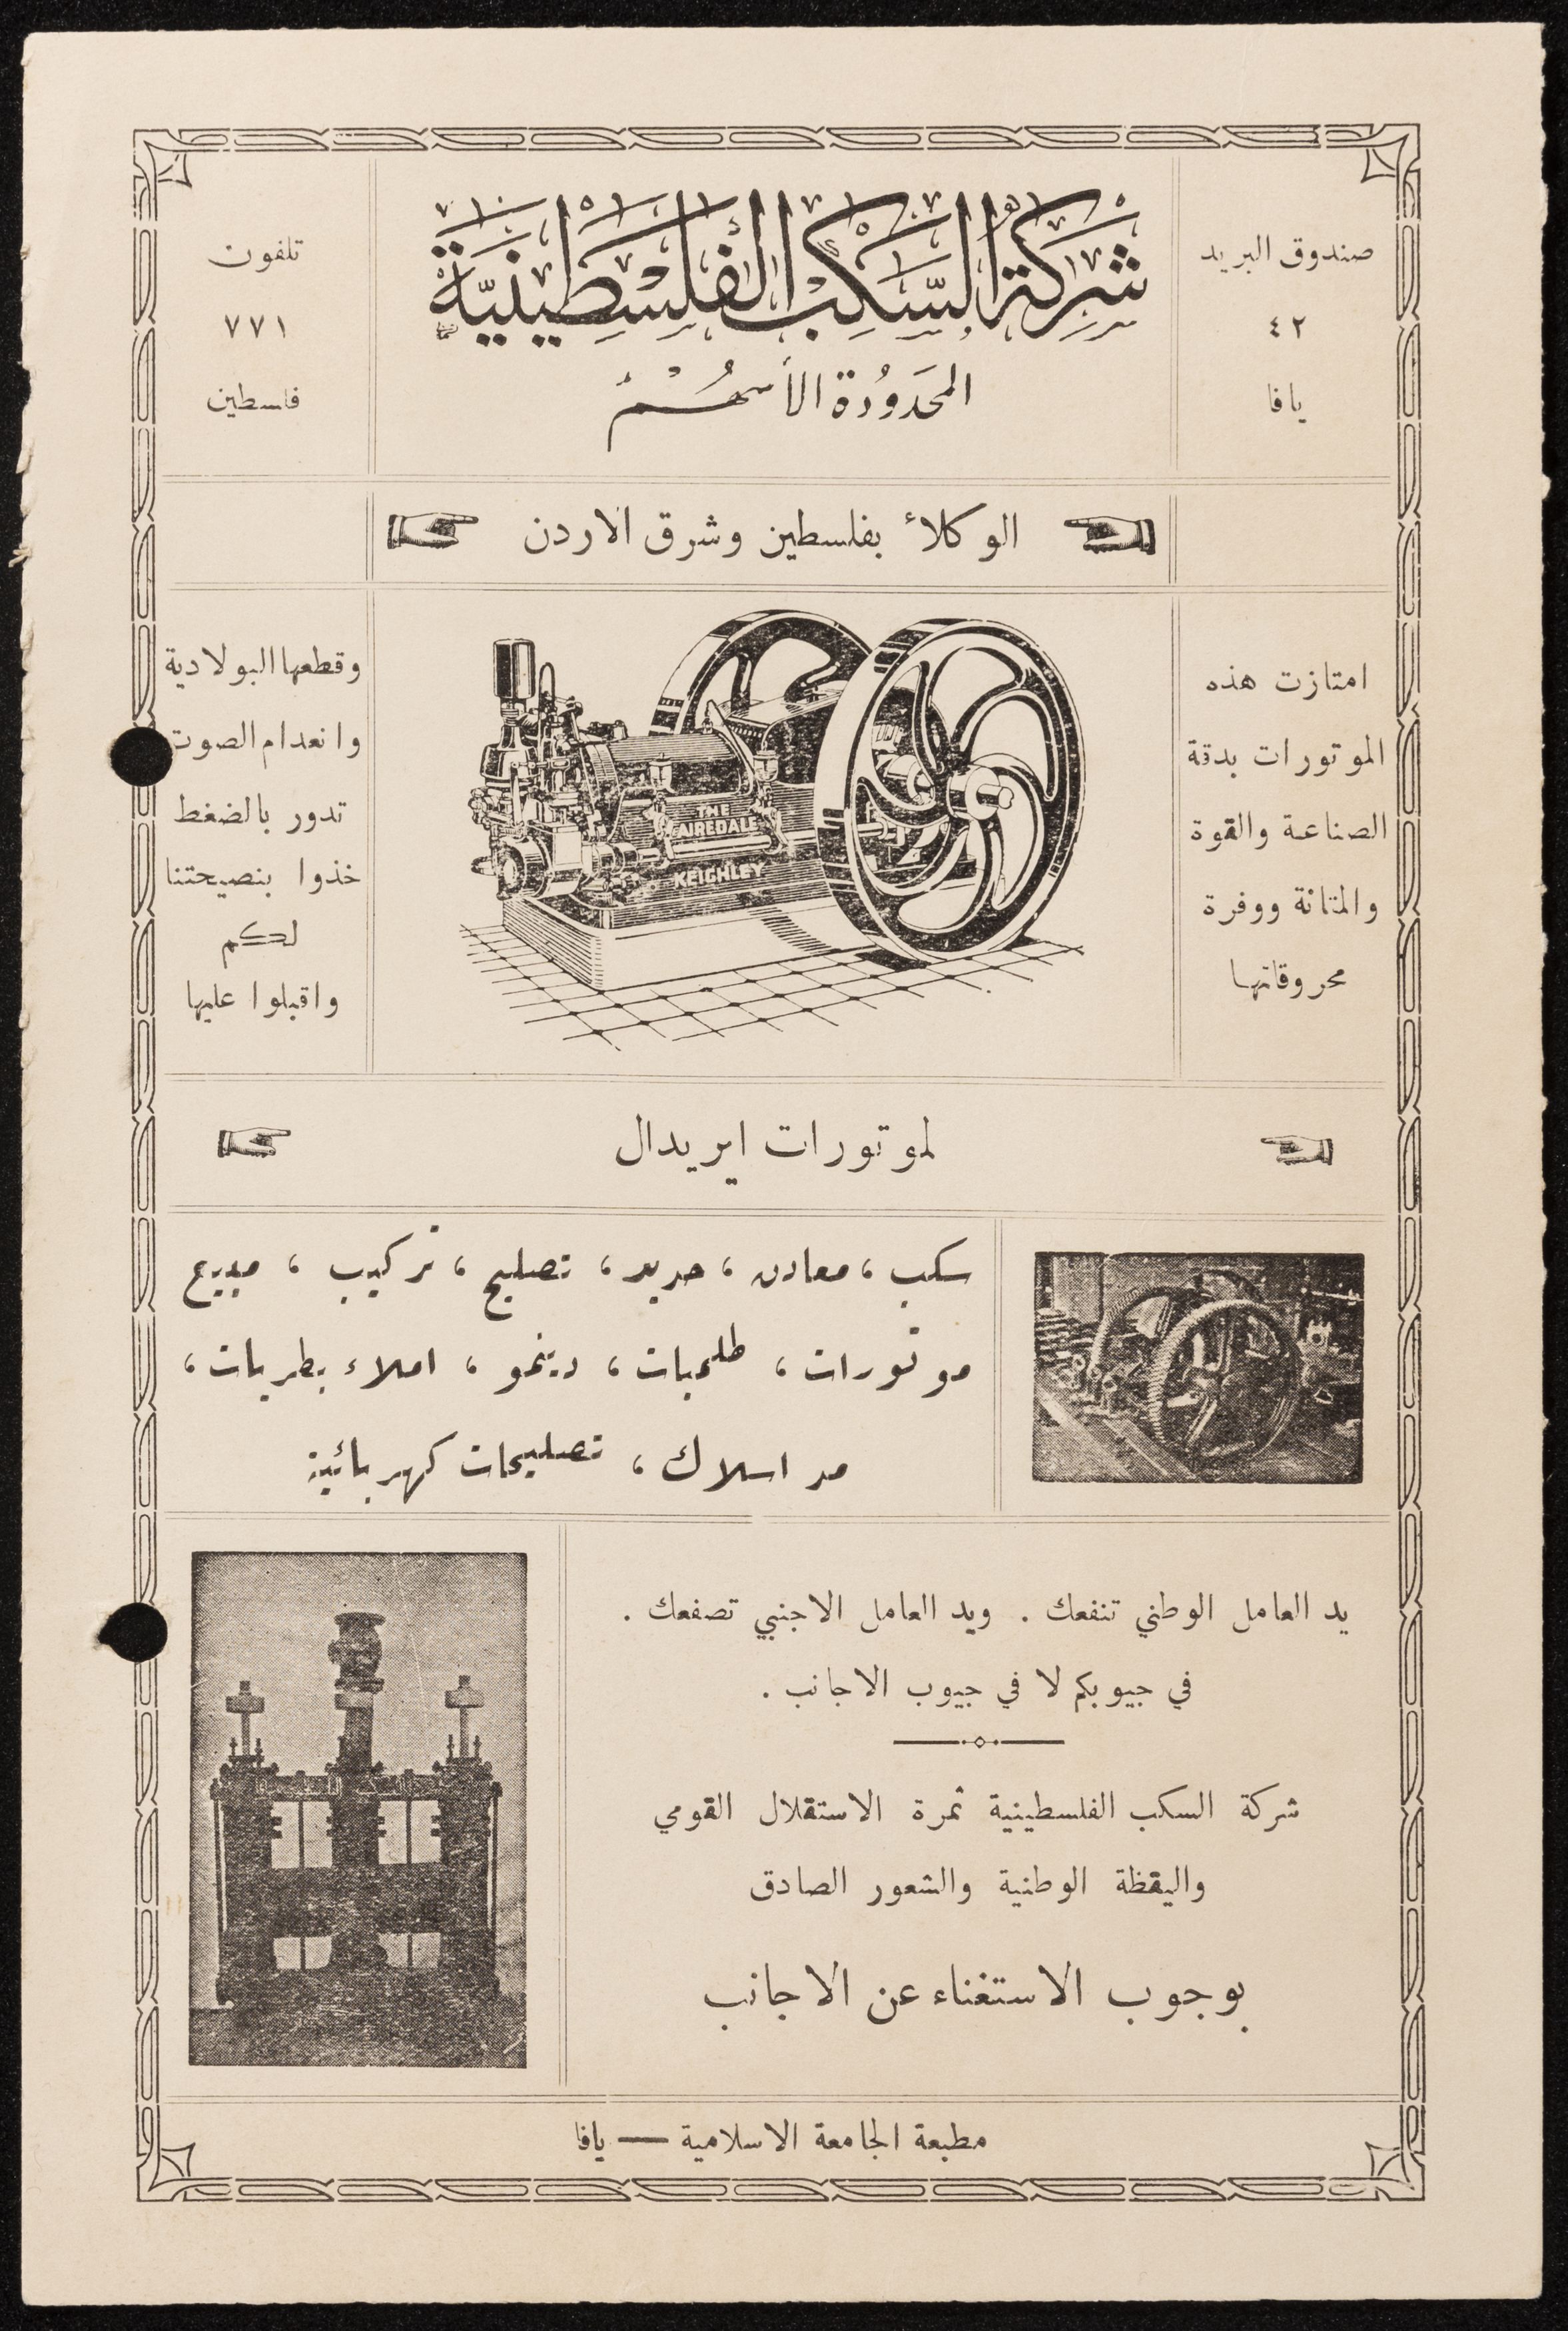 شركة السكب الفلسطينية
المحدودة الأسهم
صندوق البريد
٤٢
يافا
تلفون
٧٧١
فلسطين
الوكلاء بفلسطين وشرق الاردن
امتازت هذه
الموتورات بدقة
الصناعة والقوة
والمتانة ووفرة
محروقاتها
THE
AIREDALE
KEIGHLEY
وقطعها البولادية
وانعدام الصوت
تدور بالضغط
خذوا بنصيحتنا
لكم
واقبلوا عليها
لموتورات ايريدال
سكب ، معادن ، حديد ، تصليح ، تركيب ، مبيع
موتورات ، طلمبات ، دينمو ، املاء بطريات ،
مد اسلاك ، تصليحات كهربائية
يد العامل الوطني تنفعك . ويد العامل الاجنبي تصفعك .
في جيوبكم لا في جيوب الاجانب .
شركة السكب الفلسطينية ثمرة الاستقلال القومي
واليقظة الوطنية والشعور الصادق
بوجوب الاستغناء عن الاجانب
مطبعة الجامعة الاسلامية — يافا